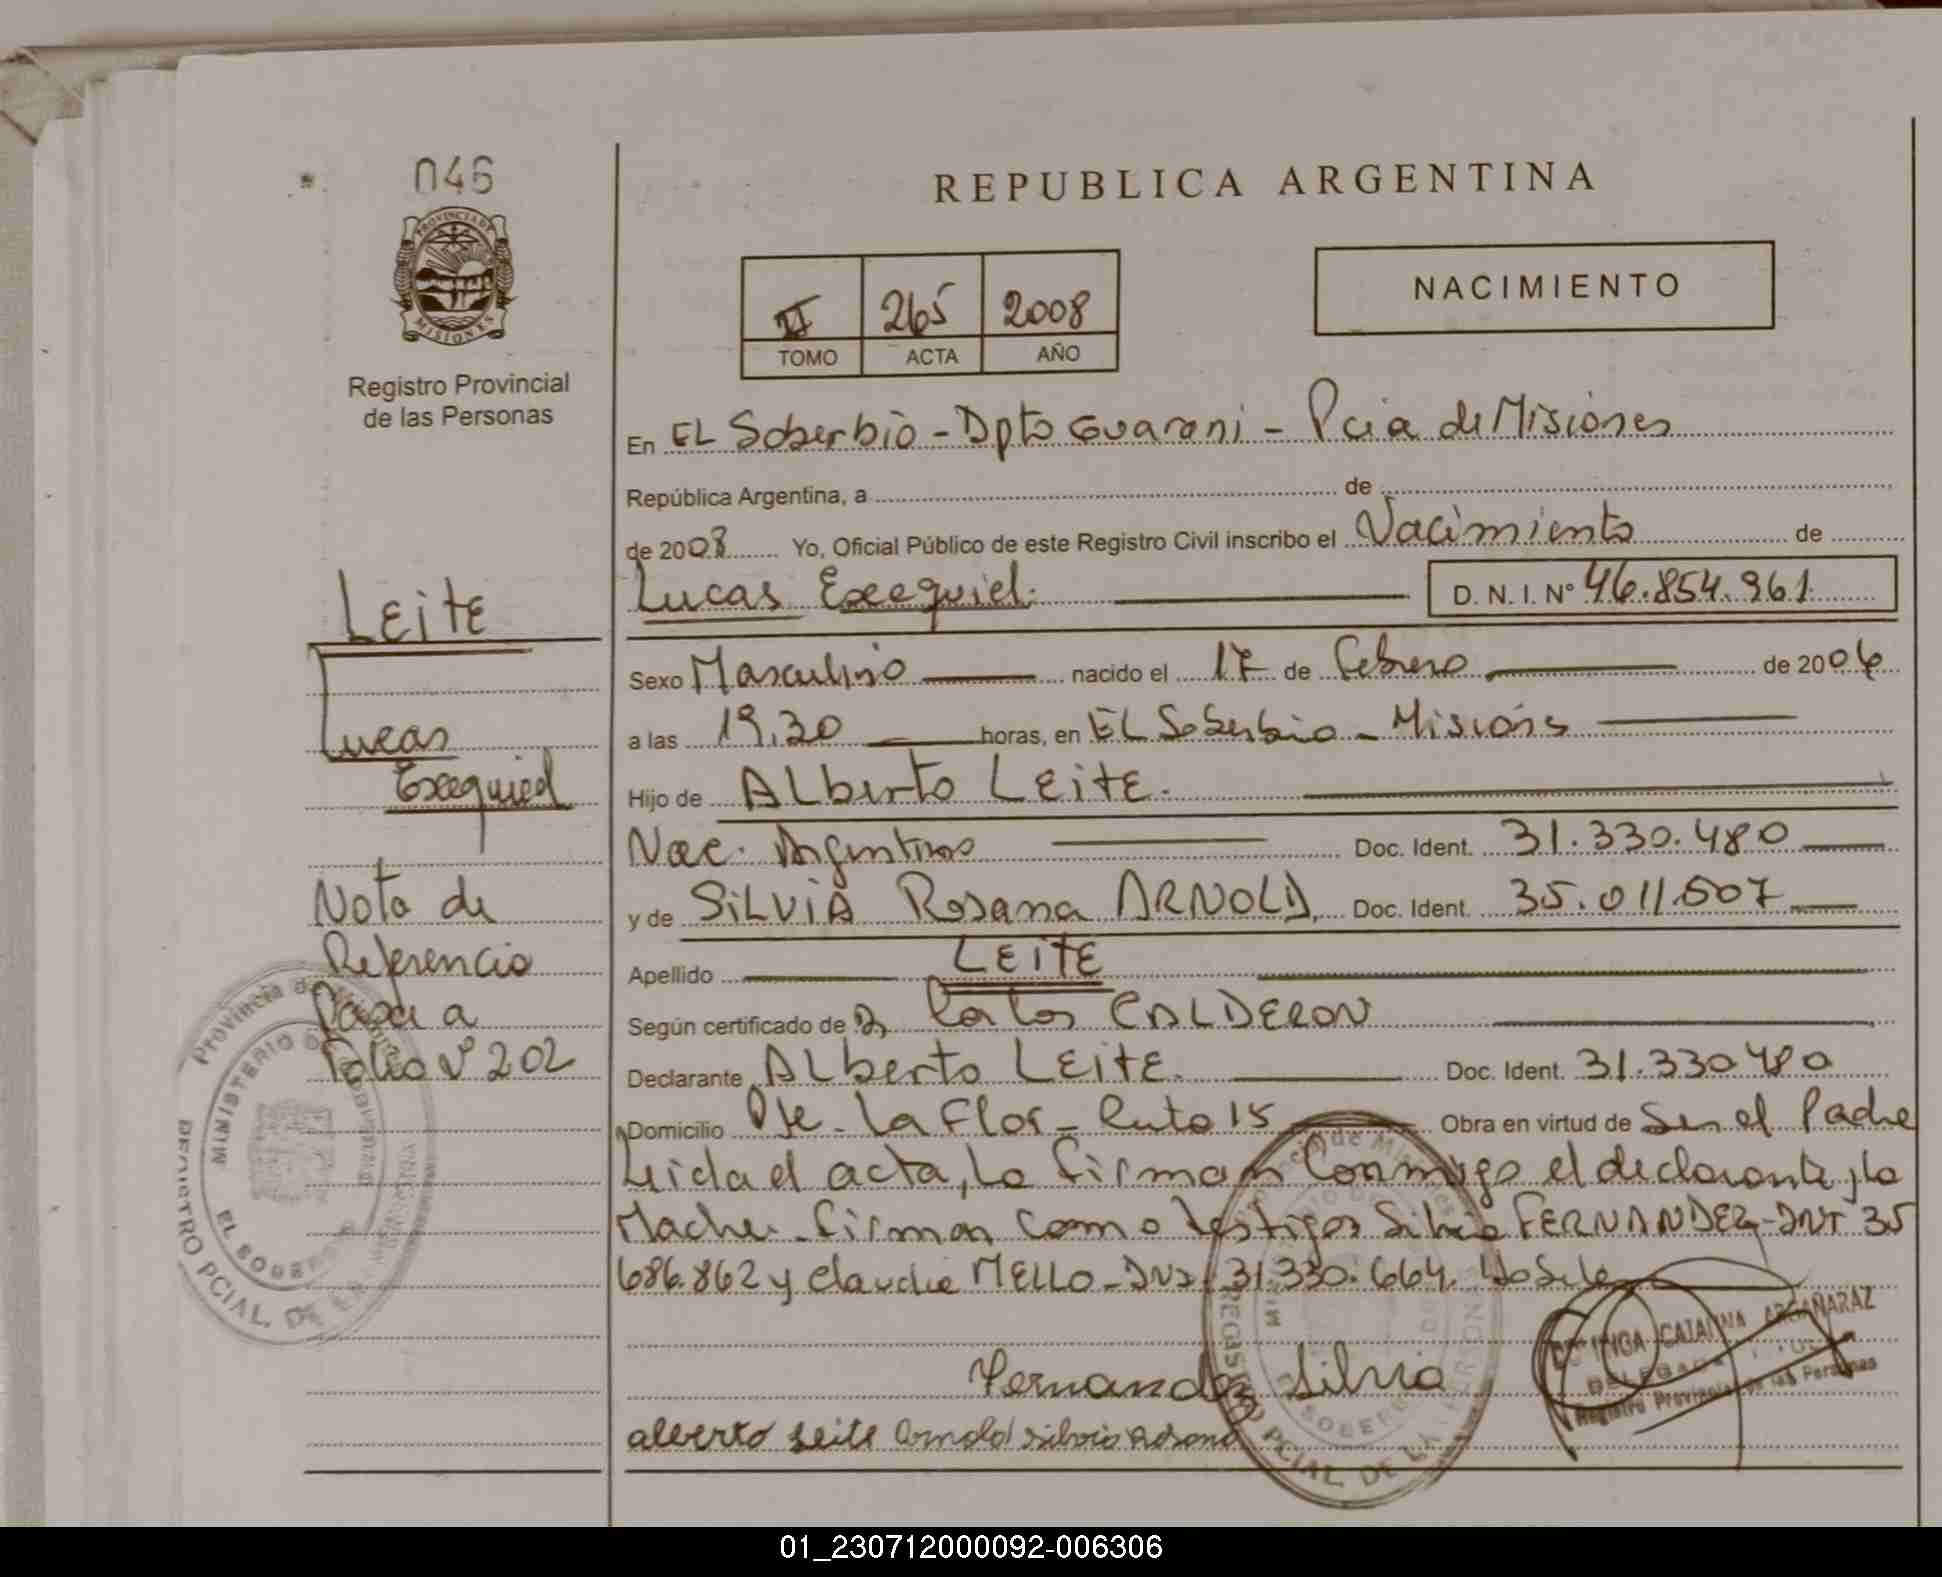 046
PROVINCIA DE
MISIONES
Registro Provincial
de las Personas
REPUBLICA ARGENTINA
II 265 2008
TOMO ACTA AÑO
NACIMIENTO
En EL Soberbio - Dpto Guarani - Pcia de Misiones
República Argentina, a de
de 2008 Yo, Oficial Público de este Registro Civil inscribo el Nacimiento de
Lucas Exequiel. D. N. I. Nº 46.854.961
Sexo Masculino nacido el 17 de Febrero de 2006
a las 19,30 horas, en EL Soberbio - Misiones
Hijo de ALberto LEitE.
Nac. Argentino Doc. Ident. 31.330.480
y de SiLViA Rosana ARNOLD, Doc. Ident. 35.011.507
Apellido LEitE
Según certificado de Carlos CALDERON
Declarante ALberto LEitE. Doc. Ident. 31.330480
Domicilio Pje - La Flor - Ruta 15 Obra en virtud de Ser el Padre
Leida el acta, La firman Conmigo el declarante, La
Madre. firman como testigos Silvia FERNANDEZ - DNI 35
686.862 y Claudia MELLO - DNI. 31.330.664.
Fernandez Silvia
alberto Leite Arnold silvia Rosana
LEitE
Lucas
Exequiel
Nota de
Referencia
Pasa a
Folio Nº 202
Provincia de Misiones
MINISTERIO DE
EL SOBERBIO
REGISTRO PCIAL. DE
Provincia de Misiones
MINISTERIO DE
SOBERBIO
REGISTRO PCIAL. DE LA
CATALINA ARGAÑARAZ
DELEGADA
Registro Provincial de las Personas
01_230712000092-006306